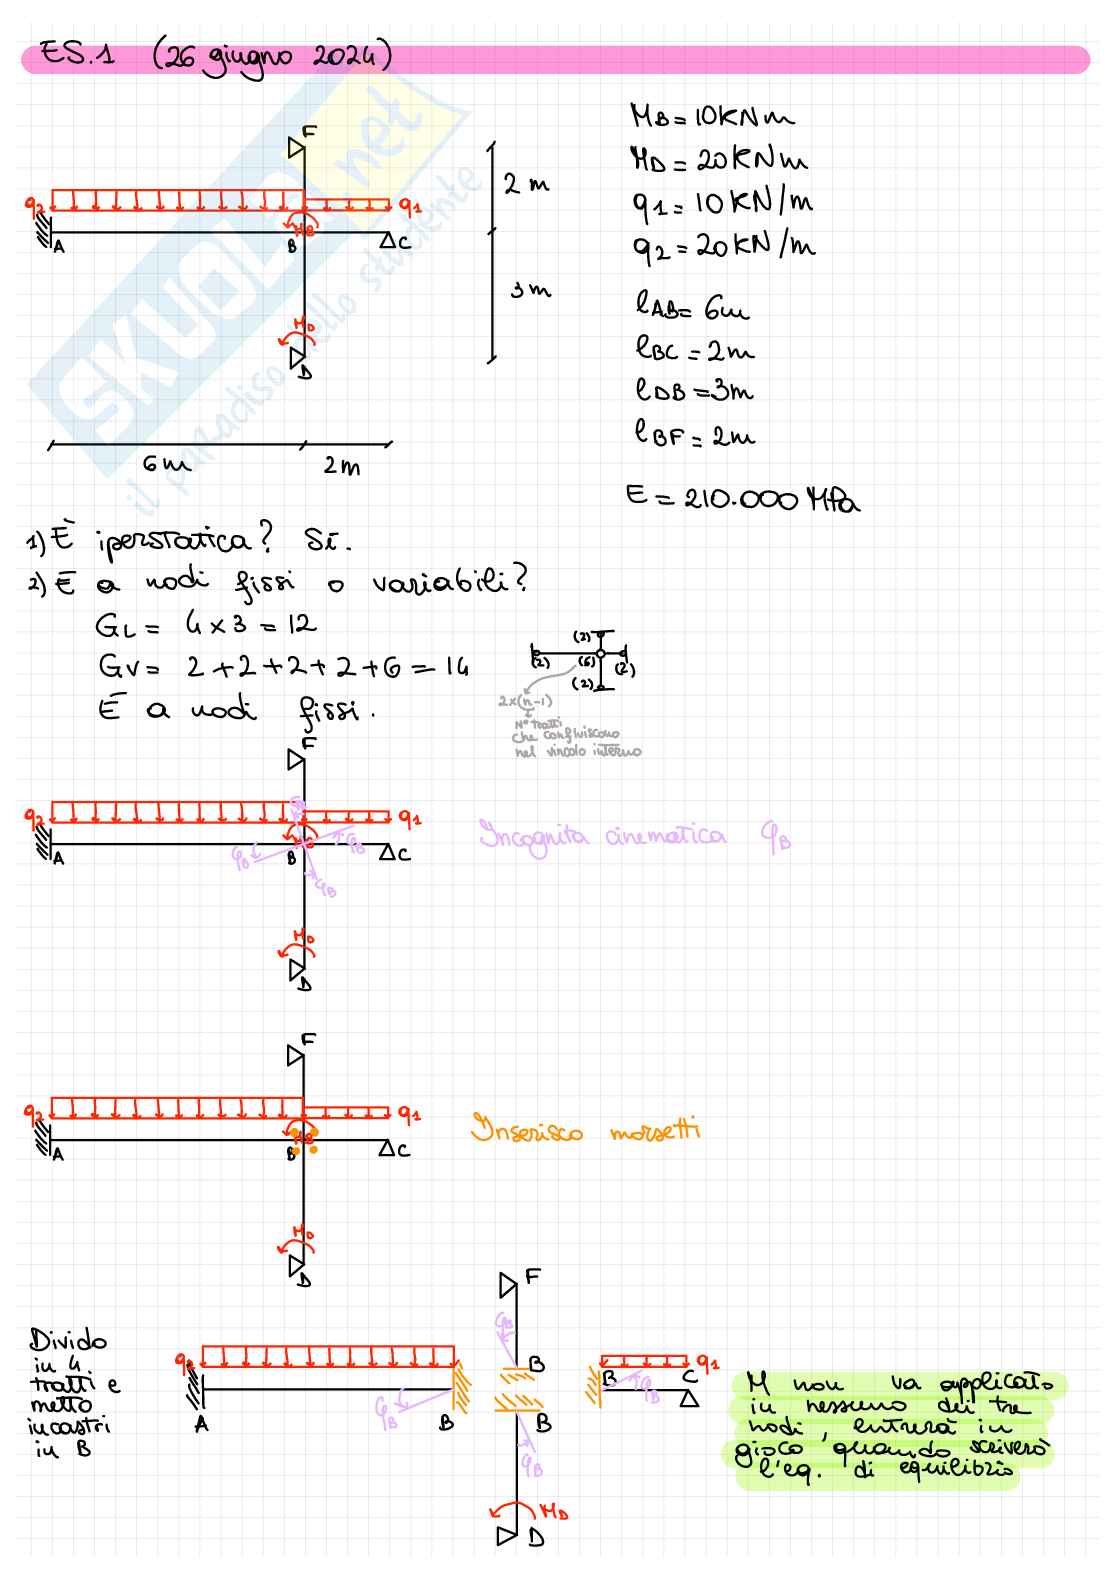 ES.1 (26 giugno 2024)
MB = 10KNm
MD = 20KNm
q1 = 10KN/m
q2 = 20KN/m
lAB = 6m
lBC = 2m
lDB = 3m
lBF = 2m
E = 210.000 MPa
F
q2
q1
MB
A
B
C
MD
D
2 m
3 m
6 m
2 m
SKUOLA.net
il paradiso dello studente
1) È iperstatica? Sì.
2) È a nodi fissi o variabili?
GL = 4 x 3 = 12
GV = 2 + 2 + 2 + 2 + 6 = 14
È a nodi fissi.
(2)
(2) (6) (2)
(2)
2x(n-1)
N° tratti
che confluiscono
nel vincolo interno
F
q2
q1
φB
φB
φB
A
B
C
MD
D
Incognita cinematica φB
F
q2
q1
MB
A
B
C
MD
D
Inserisco morsetti
Divido
in 4
tratti e
metto
incastri
in B
q2
A
φB
B
F
φB
B
B
φB
MD
D
q1
B
C
φB
M non va applicato
in nessuno dei tre
nodi, entrerà in
gioco quando scriverò
l'eq. di equilibrio